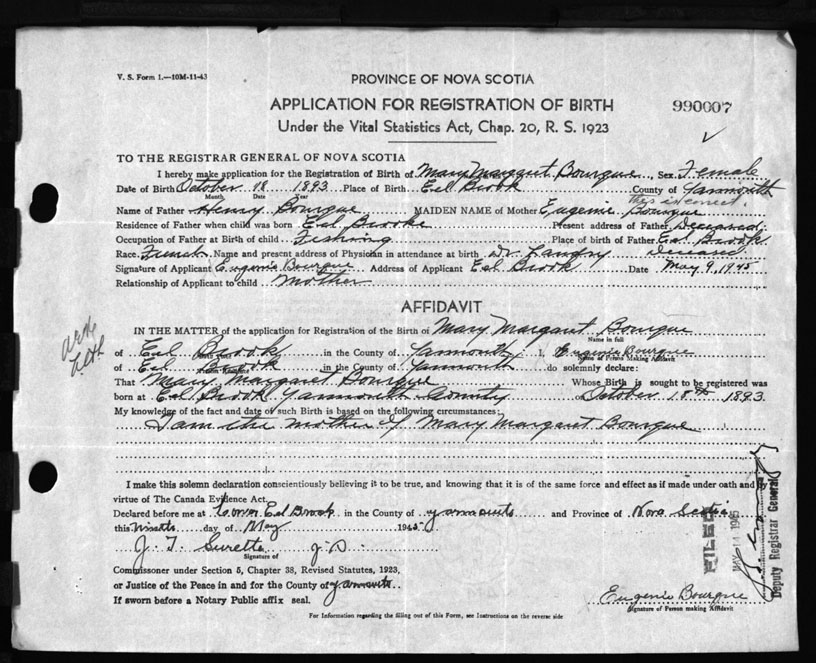 V. S. Form 1.—10M-11-43
PROVINCE OF NOVA SCOTIA
APPLICATION FOR REGISTRATION OF BIRTH
990007
Under the Vital Statistics Act, Chap. 20, R. S. 1923
TO THE REGISTRAR GENERAL OF NOVA SCOTIA
I hereby make application for the Registration of Birth of Mary Margaret Bourque Sex Female
Date of Birth October 18 1893 Place of Birth Eel Brook County of Yarmouth
Month Date Year
This is correct.
Name of Father Henry Bourque MAIDEN NAME of Mother Eugenie Bourque
Residence of Father when child was born Eel Brooke Present address of Father Deceased.
Occupation of Father at Birth of child Fishing Place of birth of Father Eel Brook
Race French Name and present address of Physician in attendance at birth Dr. Landry Deceased
Signature of Applicant Eugenie Bourque Address of Applicant Eel Brook Date May 9, 1945
Relationship of Applicant to child mother
AFFIDAVIT
IN THE MATTER of the application for Registration of the Birth of Mary Margaret Bourque
Name in full
of Eel Brook in the County of Yarmouth I, Eugenie Bourque
Name of Person Making Affidavit
of Eel Brook in the County of Yarmouth do solemnly declare:
That Mary Margaret Bourque Whose Birth is sought to be registered was
born at Eel Brook Yarmouth County on October 18th 1893
My knowledge of the fact and date of such Birth is based on the following circumstances:
I am the mother of Mary Margaret Bourque
I make this solemn declaration conscientiously believing it to be true, and knowing that it is of the same force and effect as if made under oath and by
virtue of The Canada Evidence Act.
Declared before me at Eel Brook in the County of Yarmouth and Province of Nova Scotia
this Ninth day of May 1945
J. T. Surette J.P.
Signature of
Commissoner under Section 5, Chapter 38, Revised Statutes, 1923,
or Justice of the Peace in and for the County of Yarmouth
If sworn before a Notary Public affix seal.
Eugenie Bourque
Signature of Person making Affidavit
For Information regarding the filling out of this Form, see Instructions on the reverse side
FILED
MAY 14 1945
Deputy Registrar General